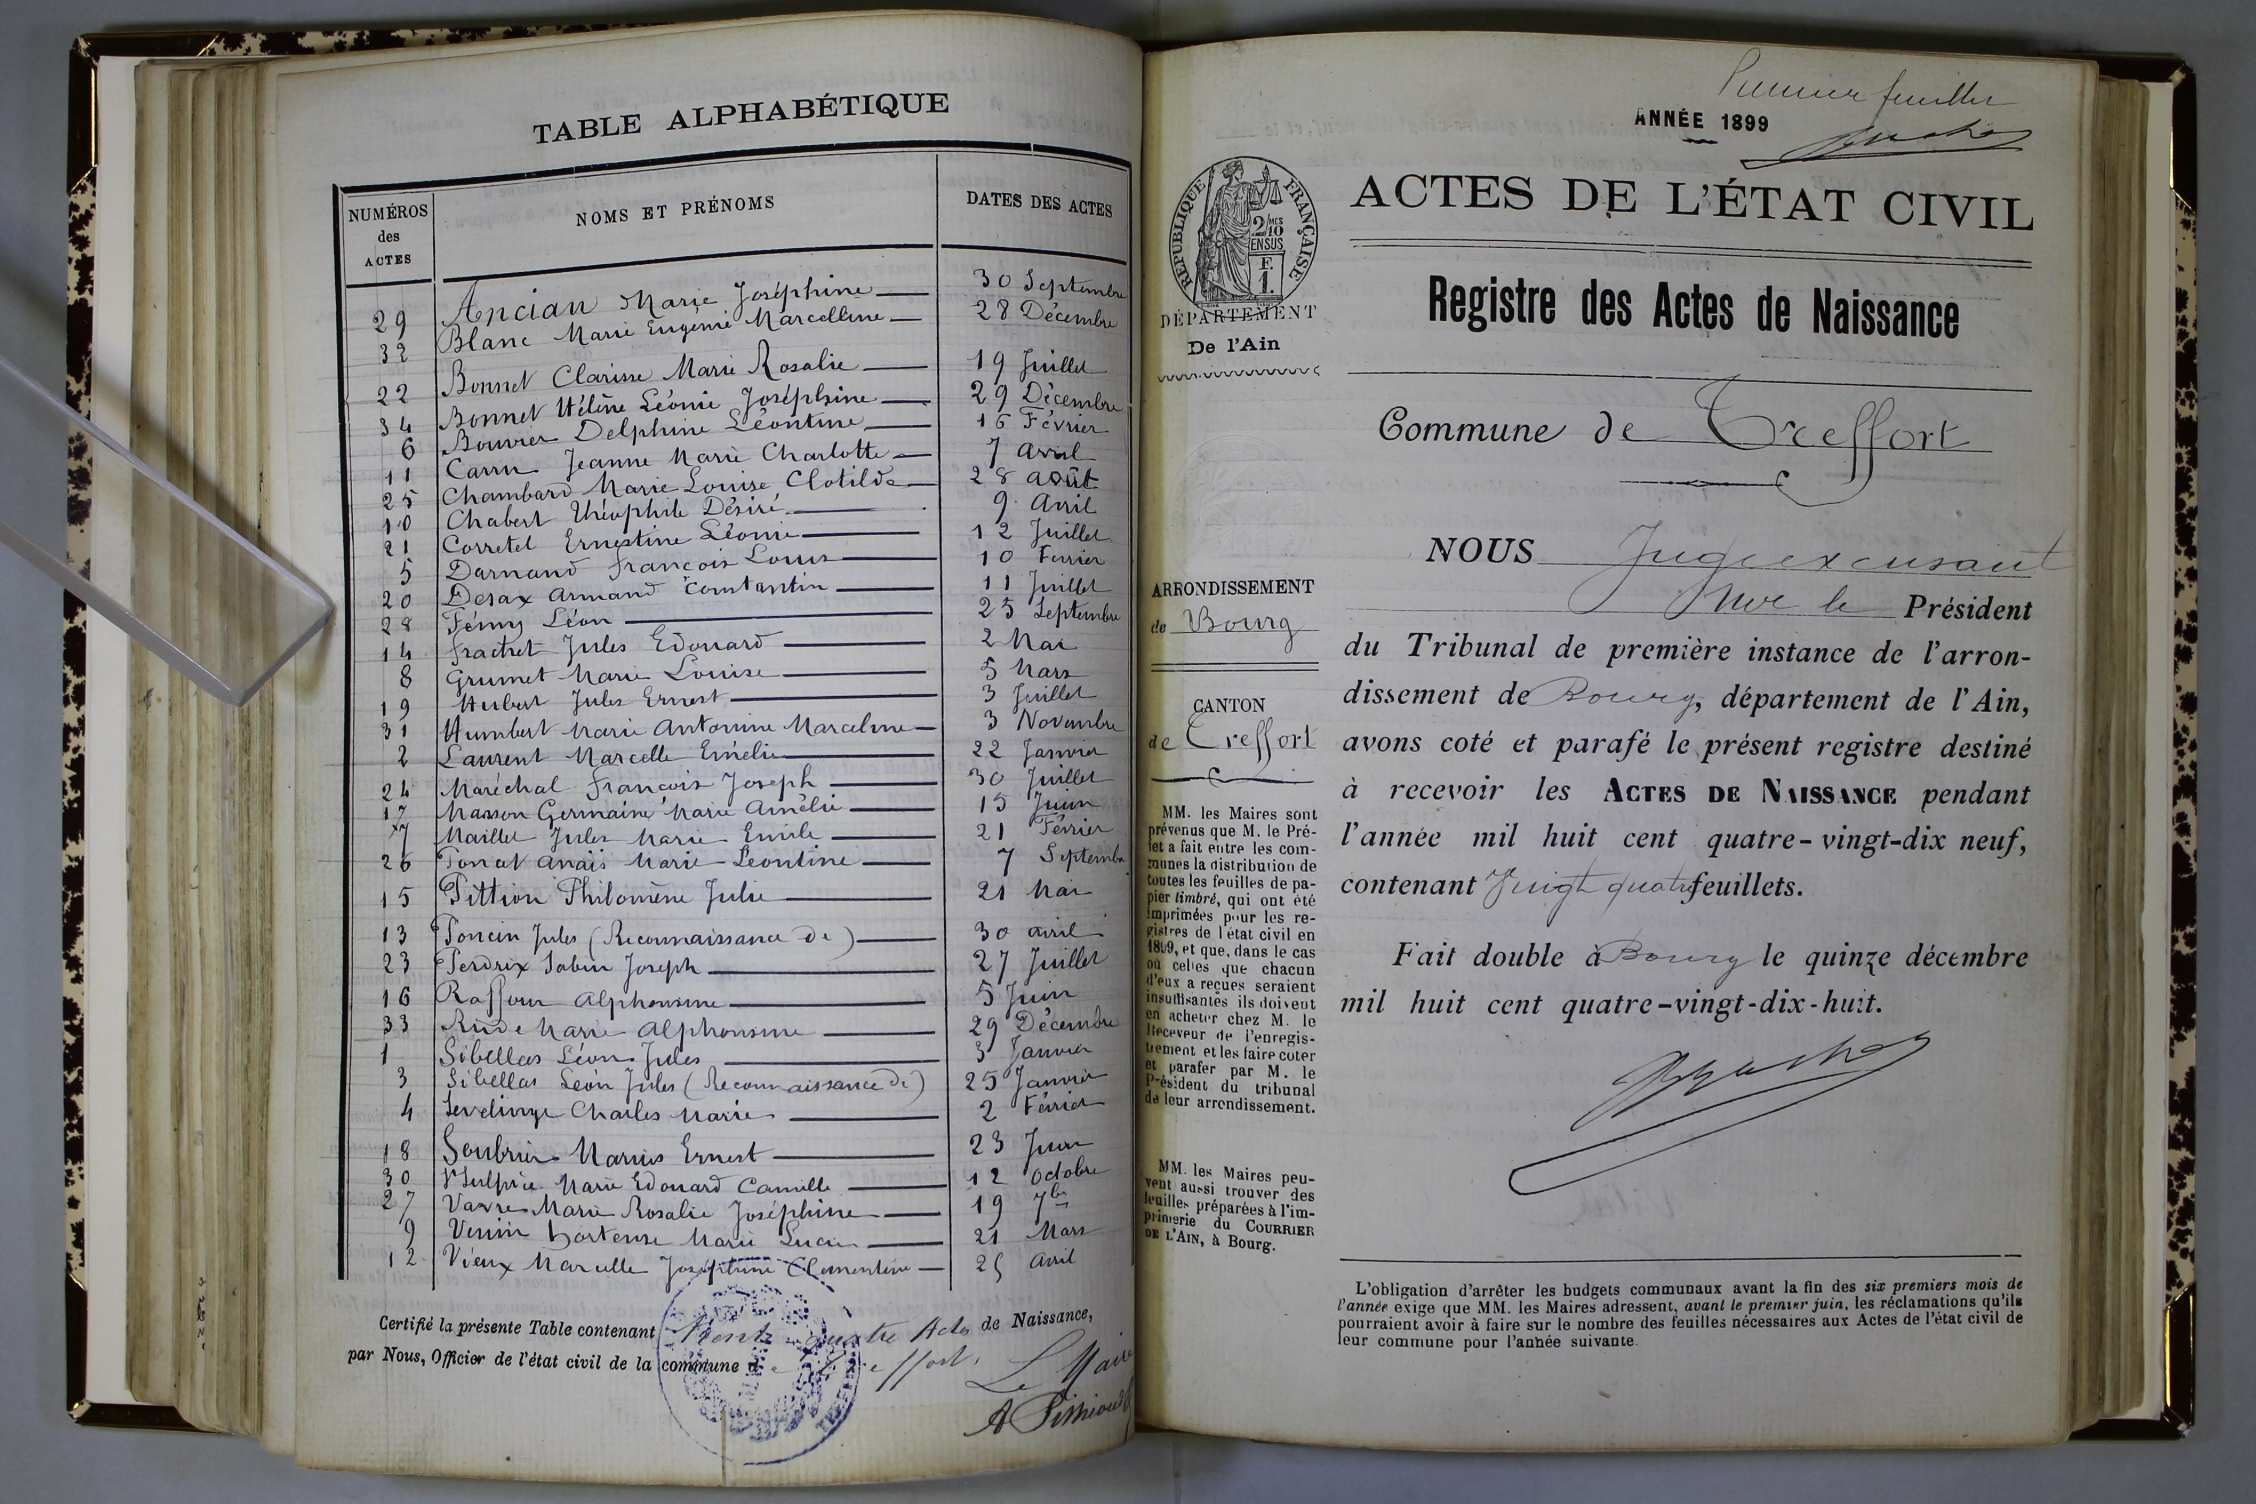 TABLE ALPHABÉTIQUE
NUMÉROS des ACTES
NOMS ET PRÉNOMS
DATES DES ACTES
29 Ancian Marie Joséphine 30 Septembre
32 Blanc Marie Eugénie Marcelline 28 Décembre
22 Bonnet Clarisse Marie Rosalie 19 Juillet
34 Bonnet Hélène Léonie Joséphine 29 Décembre
6 Bouvier Delphine Léontine 16 Février
11 Carru Jeanne Marie Charlotte 7 Avril
25 Chambard Marie Louise Clotilde 28 août
10 Chabert Théophile Désiré 9 Avril
21 Corretel Ernestine Léonie 12 Juillet
5 Darnand François Louis 10 Fevrier
20 Desax Armand Constantin 11 Juillet
28 Léon 25 Septembre
14 Frachet Jules Edouard 2 Mai
8 Grumet Marie Louise 5 Mars
19 Hubert Jules Ernest 3 Juillet
31 Humbert Marie Antonine Marceline 3 Novembre
2 Laurent Marcelle Emélie 22 Janvier
24 Maréchal François Joseph 30 Juillet
17 Masson Germaine Marie Amélie 15 Juin
7 Maillet Jules Marie Emile 21 Février
26 Ponat Anaïs Marie Léontine 7 Septembre
15 Pittion Philomène Julie 21 Mai
13 Poncin Jules (Reconnaissance de) 30 avril
23 Perdrix Sabin Joseph 27 Juillet
16 Raffour Alphonsine 5 Juin
33 Rude Marie Alphonsine 29 Décembre
1 Sibellas Léon Jules 3 Janvier
3 Sibellas Léon Jules (Reconnaissance de) 25 Janvier
4 Servelinge Charles Marie 2 Février
18 Soubrier Marius Ernest 23 Juin
30 Sulpice Marie Edouard Camille 12 Octobre
27 Vavre Marie Rosalie Joséphine 19 7bre
9 Venin hortense Marie Lucie 21 Mars
12 Vieux Marcelle Joséphine Clementine 25 Avril
Certifié la présente Table contenant Trente quatre Actes de Naissance,
par Nous, Officier de l'état civil de la commune de Treffort.
Le Maire
Premier feuillet
ANNÉE 1899
RÉPUBLIQUE FRANÇAISE
2/10
EN SUS
F.
1.
DÉPARTEMENT
De l'Ain
ARRONDISSEMENT
de Bourg
CANTON
de Treffort
MM. les Maires sont
prévenus que M. le Pré-
fet a fait entre les com-
munes la distribution de
toutes les feuilles de pa-
pier timbré, qui ont été
imprimées pour les re-
gistres de l'état civil en
1899, et que, dans le cas
où celles que chacun
d'eux a reçues seraient
insuffisantes ils doivent
en acheter chez M. le
Receveur de l'enregis-
trement et les faire coter
et parafer par M. le
Président du tribunal
de leur arrondissement.
MM. les Maires peu-
vent aussi trouver des
feuilles préparées à l'im-
primerie du COURRIER
DE L'AIN, à Bourg.
ACTES DE L'ÉTAT CIVIL
Registre des Actes de Naissance
Commune de Treffort
NOUS Juge excusant
Mr le Président
du Tribunal de première instance de l'arron-
dissement de Bourg, département de l'Ain,
avons coté et parafé le présent registre destiné
à recevoir les ACTES DE NAISSANCE pendant
l'année mil huit cent quatre-vingt-dix neuf,
contenant Vingt quatre feuillets.
Fait double à Bourg le quinze décembre
mil huit cent quatre-vingt-dix-huit.
L'obligation d'arrêter les budgets communaux avant la fin des six premiers mois de
l'année exige que MM. les Maires adressent, avant le premier juin, les réclamations qu'ils
pourraient avoir à faire sur le nombre des feuilles nécessaires aux Actes de l'état civil de
leur commune pour l'année suivante.